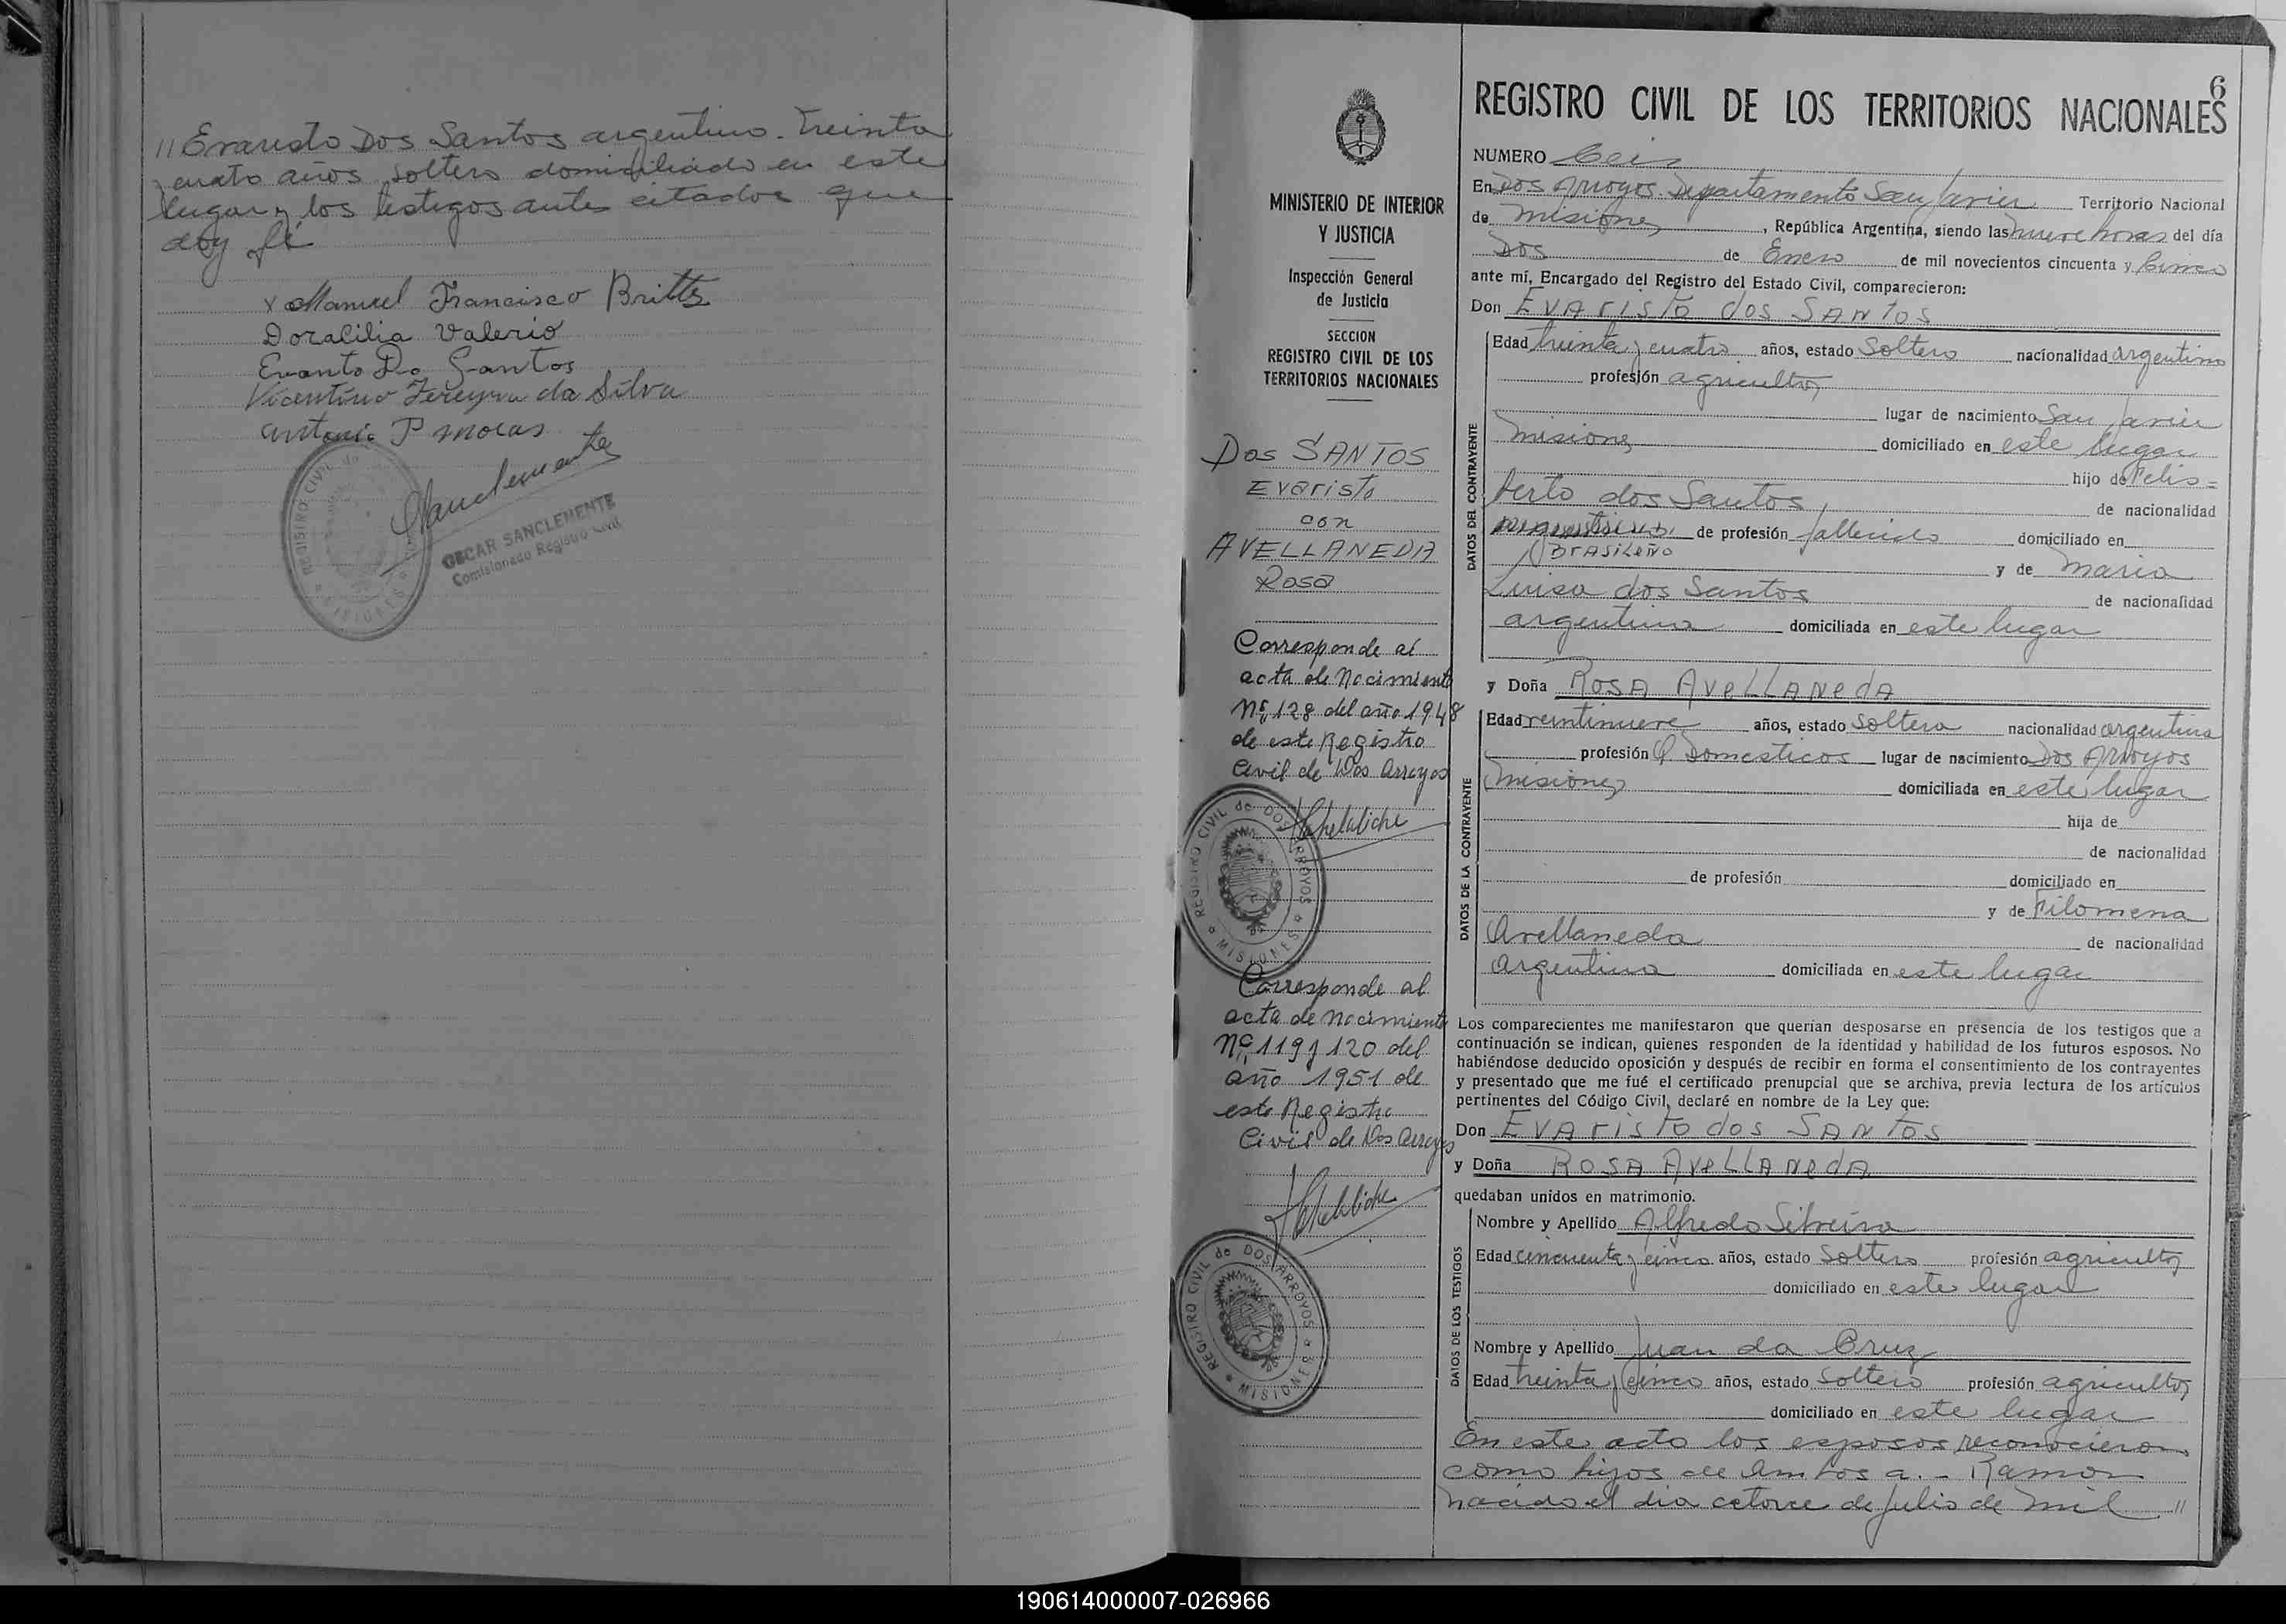 // Evaristo Dos Santos argentino. Treinta
y cuatro años soltero domiciliado en este
lugar y los testigos antes citados que
doy fé
x Manuel Francisco Britts
Doralilia Valerio
Evaristo Do Santos
Vicentino Fereyra da Silva
Antonio P moras
REGISTRO CIVIL de
MISIONES
OSCAR SANCLEMENTE
Comisionado Registro Civil
MINISTERIO DE INTERIOR
Y JUSTICIA
Inspección General
de Justicia
SECCION
REGISTRO CIVIL DE LOS
TERRITORIOS NACIONALES
Dos SANTOS
Evaristo
con
AVELLANEDA
Rosa
Corresponde al
acta de Nacimiento
Nº 128 del año 1948
de este Registro
Civil de Dos Arroyos
REGISTRO CIVIL de DOS ARROYOS
MISIONES
Corresponde al
acta de Nacimiento
Nº 119 y 120 del
año 1951 de
este Registro
Civil de Dos Arroyos
REGISTRO CIVIL de DOS ARROYOS
MISIONES
6
REGISTRO CIVIL DE LOS TERRITORIOS NACIONALES
NUMERO Seis
En Dos Arroyos Departamento San Javier Territorio Nacional
de Misiones, República Argentina, siendo las nueve horas del día
Dos de Enero de mil novecientos cincuenta y Cinco
ante mí, Encargado del Registro del Estado Civil, comparecieron:
Don EVARISTO dos SANTOS
DATOS DEL CONTRAYENTE
Edad treinta y cuatro años, estado Soltero nacionalidad argentino
profesión agricultor
lugar de nacimiento San Javier
Misiones domiciliado en este lugar
hijo de Felis=
berto dos Santos de nacionalidad
argentino, de profesión fallecido domiciliado en
BRASILEÑO
y de Maria
Luisa dos Santos de nacionalidad
argentina domiciliada en este lugar
y Doña ROSA AVELLANEDA
DATOS DE LA CONTRAYENTE
Edad veintinueve años, estado soltera nacionalidad argentina
profesión Q Domesticos lugar de nacimiento Dos Arroyos
Misiones domiciliada en este lugar
hija de
de nacionalidad
de profesión domiciliado en
y de Filomena
Avellaneda de nacionalidad
argentina domiciliada en este lugar
Los comparecientes me manifestaron que querían desposarse en presencia de los testigos que a
continuación se indican, quienes responden de la identidad y habilidad de los futuros esposos. No
habiéndose deducido oposición y después de recibir en forma el consentimiento de los contrayentes
y presentado que me fué el certificado prenupcial que se archiva, previa lectura de los artículos
pertinentes del Código Civil, declaré en nombre de la Ley que:
Don EVARISTO dos SANTOS
y Doña ROSA AVELLANEDA
quedaban unidos en matrimonio.
DATOS DE LOS TESTIGOS
Nombre y Apellido Alfredo Silveira
Edad cincuenta y cinco años, estado soltero profesión agricultor
domiciliado en este lugar
Nombre y Apellido Juan da Cruz
Edad treinta y cinco años, estado soltero profesión agricultor
domiciliado en este lugar
En este acto los esposos reconocieron
como hijos de Ambos a. - Ramon
nacido el dia catorce de Julio de mil //
190614000007-026966